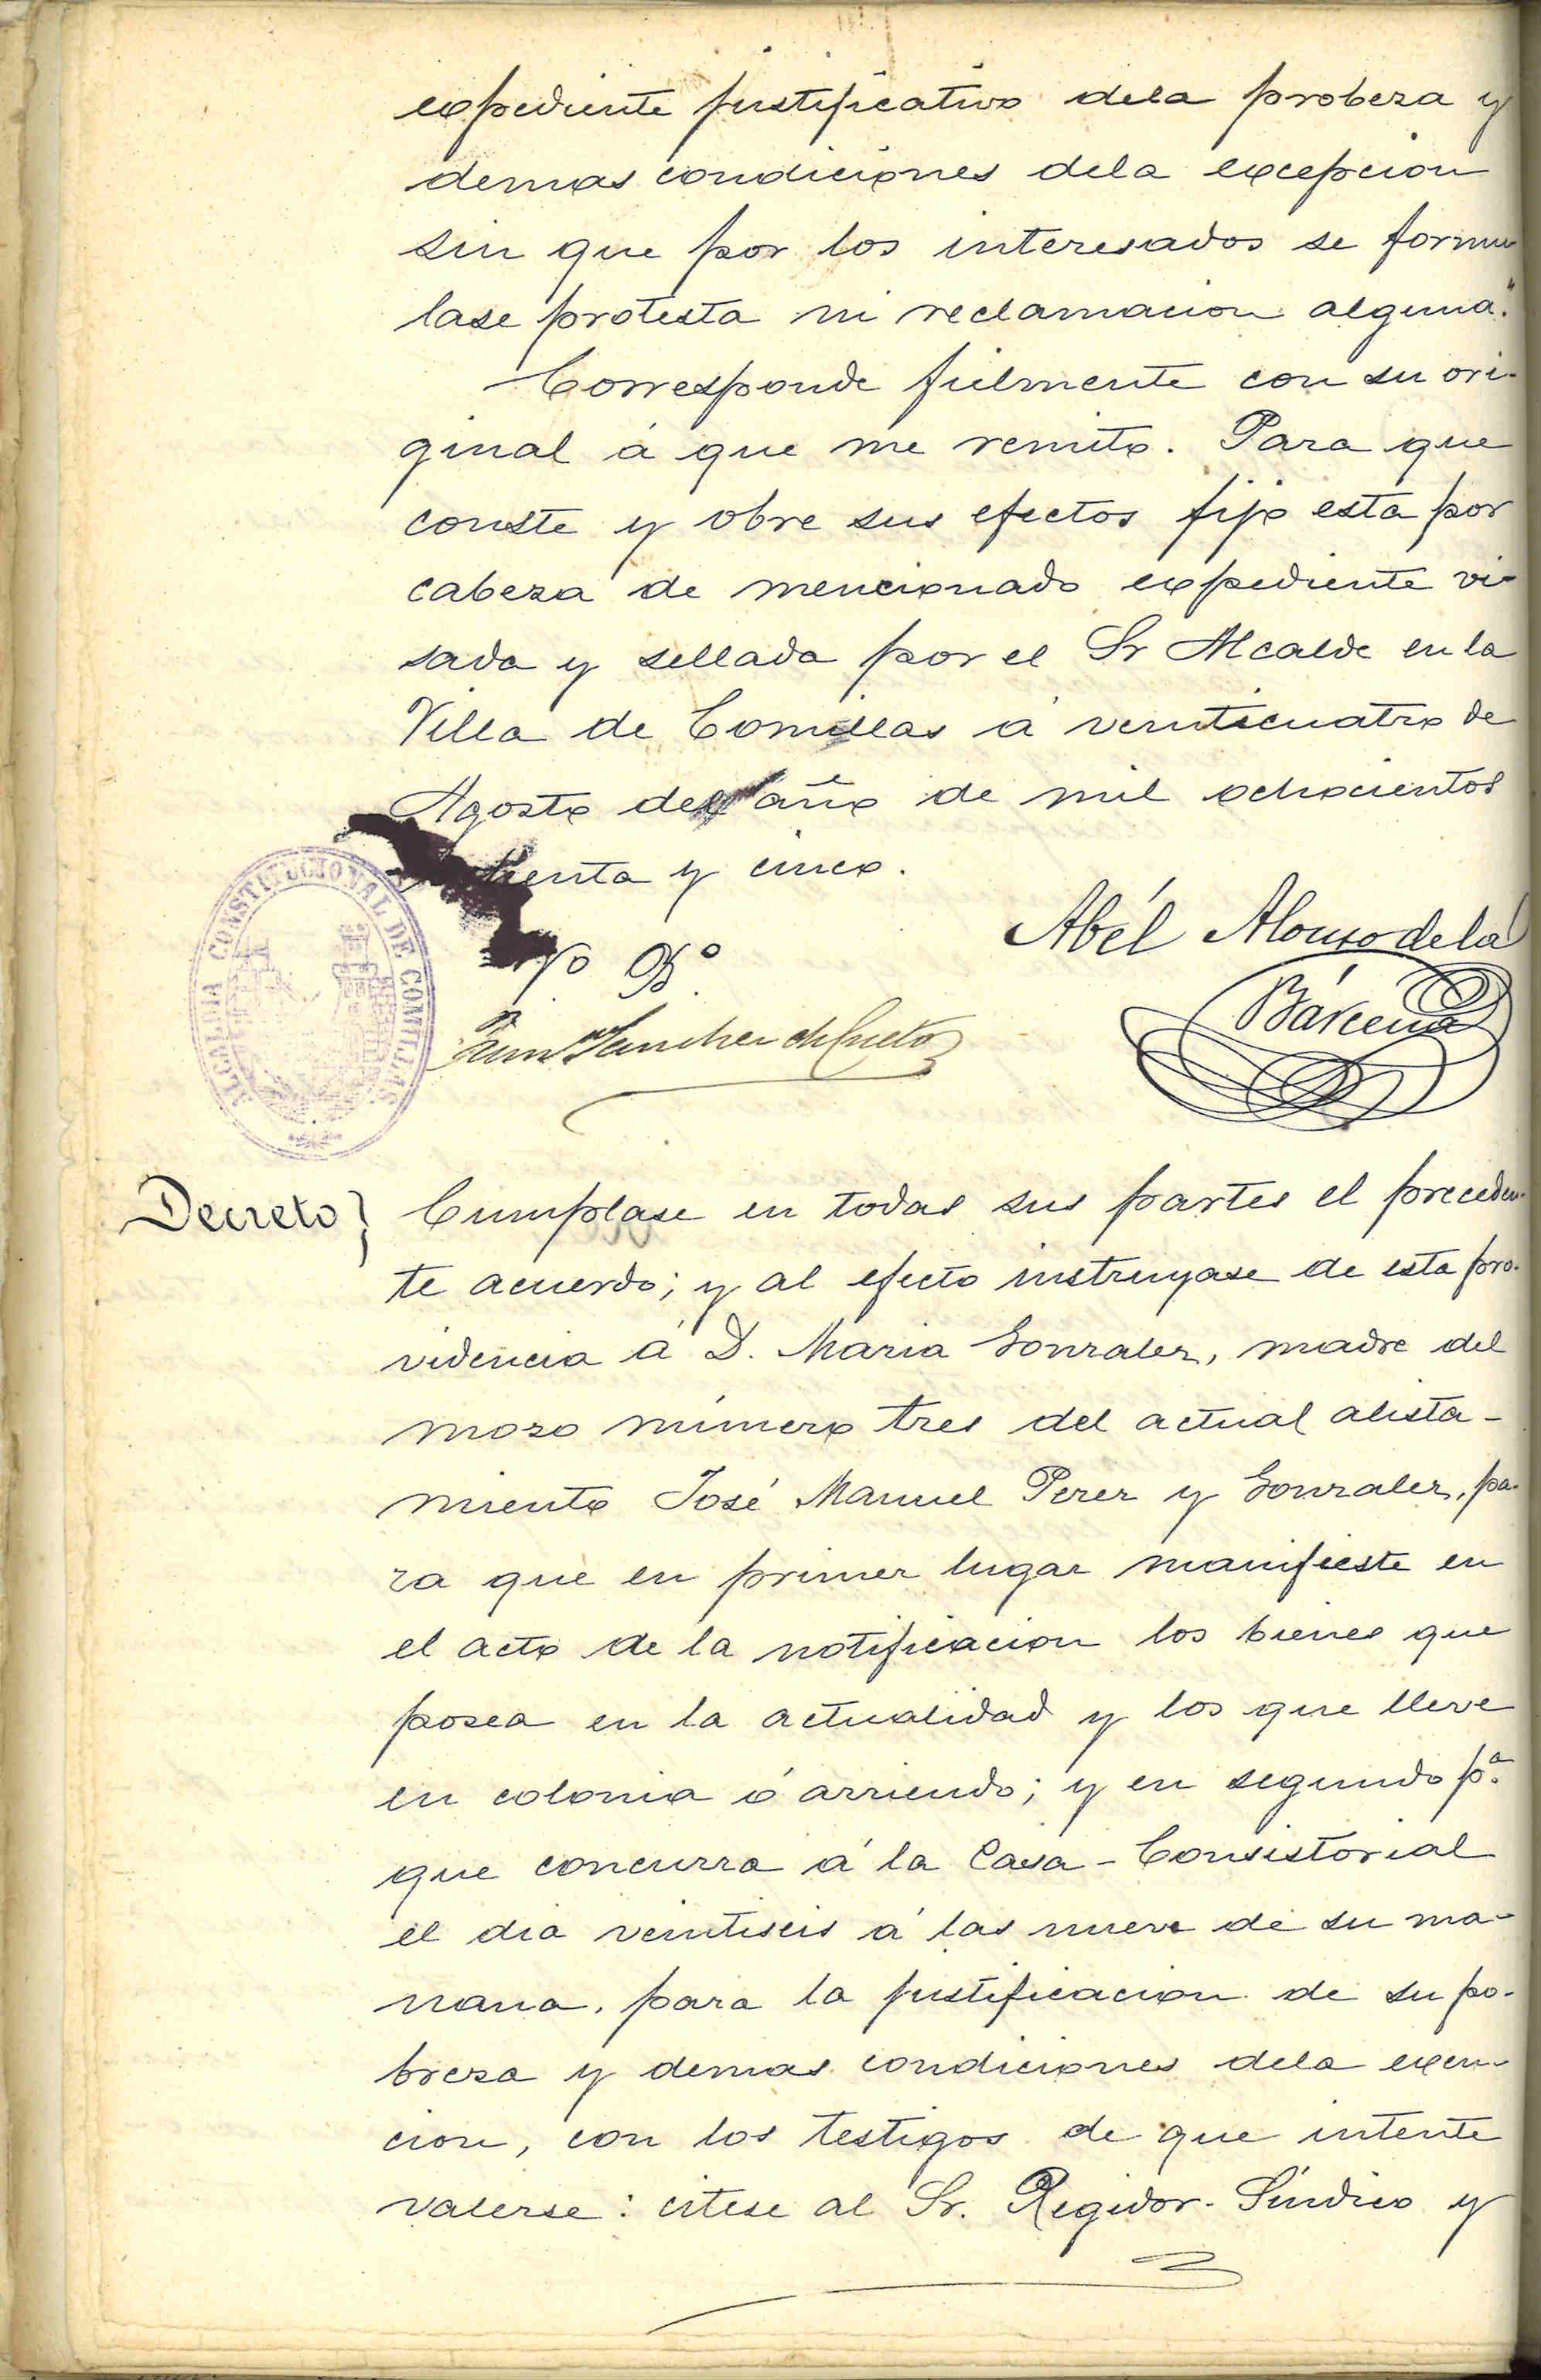 expediente justificativo dela probeza y
demas condiciones dela excepcion
sin que por los interesados se formu
lase protesta ni reclamacion alguna."
Corresponde fielmente con su ori-
ginal á que me remito. Para que
conste y obre sus efectos fijo esta por
cabeza de mencionado expediente vi-
sada y sellada por el Sr Alcalde en la
Villa de Comillas á veinticuatro de
Agosto del año de mil ochocientos
y cinco.
ALCALDIA CONSTITUCIONAL DE COMILLAS
Vº Bº
Abél Alonso de la
Bárcena
Sanchez de Cueto
Decreto} Cumplase en todas sus partes el preceden-
te acuerdo; y al efecto instruyase de esta pro-
videncia á D. Maria Gonzalez, madre del
mozo número tres del actual alista-
miento José Manuel Perez y Gonzalez, pa-
ra que en primer lugar manifieste en
el acto de la notificacion los bienes que
posea en la actualidad y los que lleve
en colonia ó arriendo; y en segundo pª.
que concurra á la Casa-Consistorial
el dia veintiseis á las nueve de su ma-
nana, para la justificacion de su po-
breza y demas condiciones dela exen-
cion, con los testigos de que intente
valerse: citese al Sr. Regidor-Síndico y